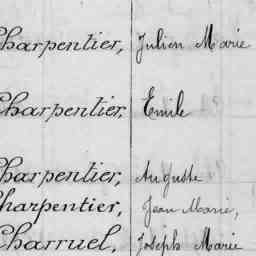 Charpentier, Julien Marie
Charpentier, Emile
Charpentier, Auguste
Charpentier, Jean Marie,
Charruel, Joseph Marie